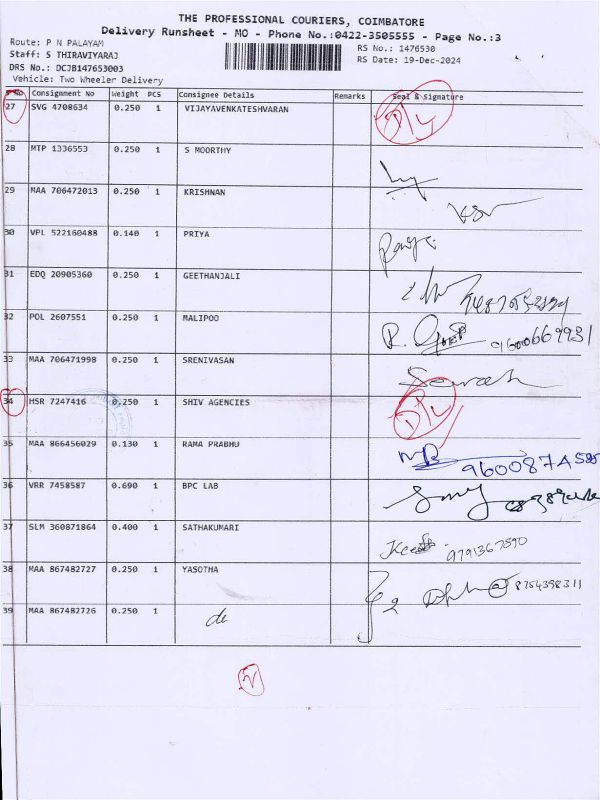 THE PROFESSIONAL COURIERS, COIMBATORE
Delivery Runsheet - MO - Phone No.:0422-3505555 - Page No.:3
Route: P N PALAYAM
RS No.: 1476530
Staff: S THIRAVIYARAJ
RS Date: 19-Dec-2024
DRS No.: DCJB147653003
Vehicle: Two Wheeler Delivery
S No Consignment No Weight PCS Consignee Details Remarks Seal & Signature
27 SVG 4708634 0.250 1 VIJAYAVENKATESHVARAN D/L
28 MTP 1336553 0.250 1 S MOORTHY
29 MAA 706472013 0.250 1 KRISHNAN
30 VPL 522160488 0.140 1 PRIYA
31 EDQ 20905360 0.250 1 GEETHANJALI
32 POL 2607551 0.250 1 MALIPOO 9600669931
33 MAA 706471998 0.250 1 SRENIVASAN
34 HSR 7247416 0.250 1 SHIV AGENCIES D/L
35 MAA 866456029 0.130 1 RAMA PRABHU
36 VRR 7458587 0.690 1 BPC LAB
37 SLM 360871864 0.400 1 SATHAKUMARI 9791367590
38 MAA 867482727 0.250 1 YASOTHA 8754398311
39 MAA 867482726 0.250 1 do